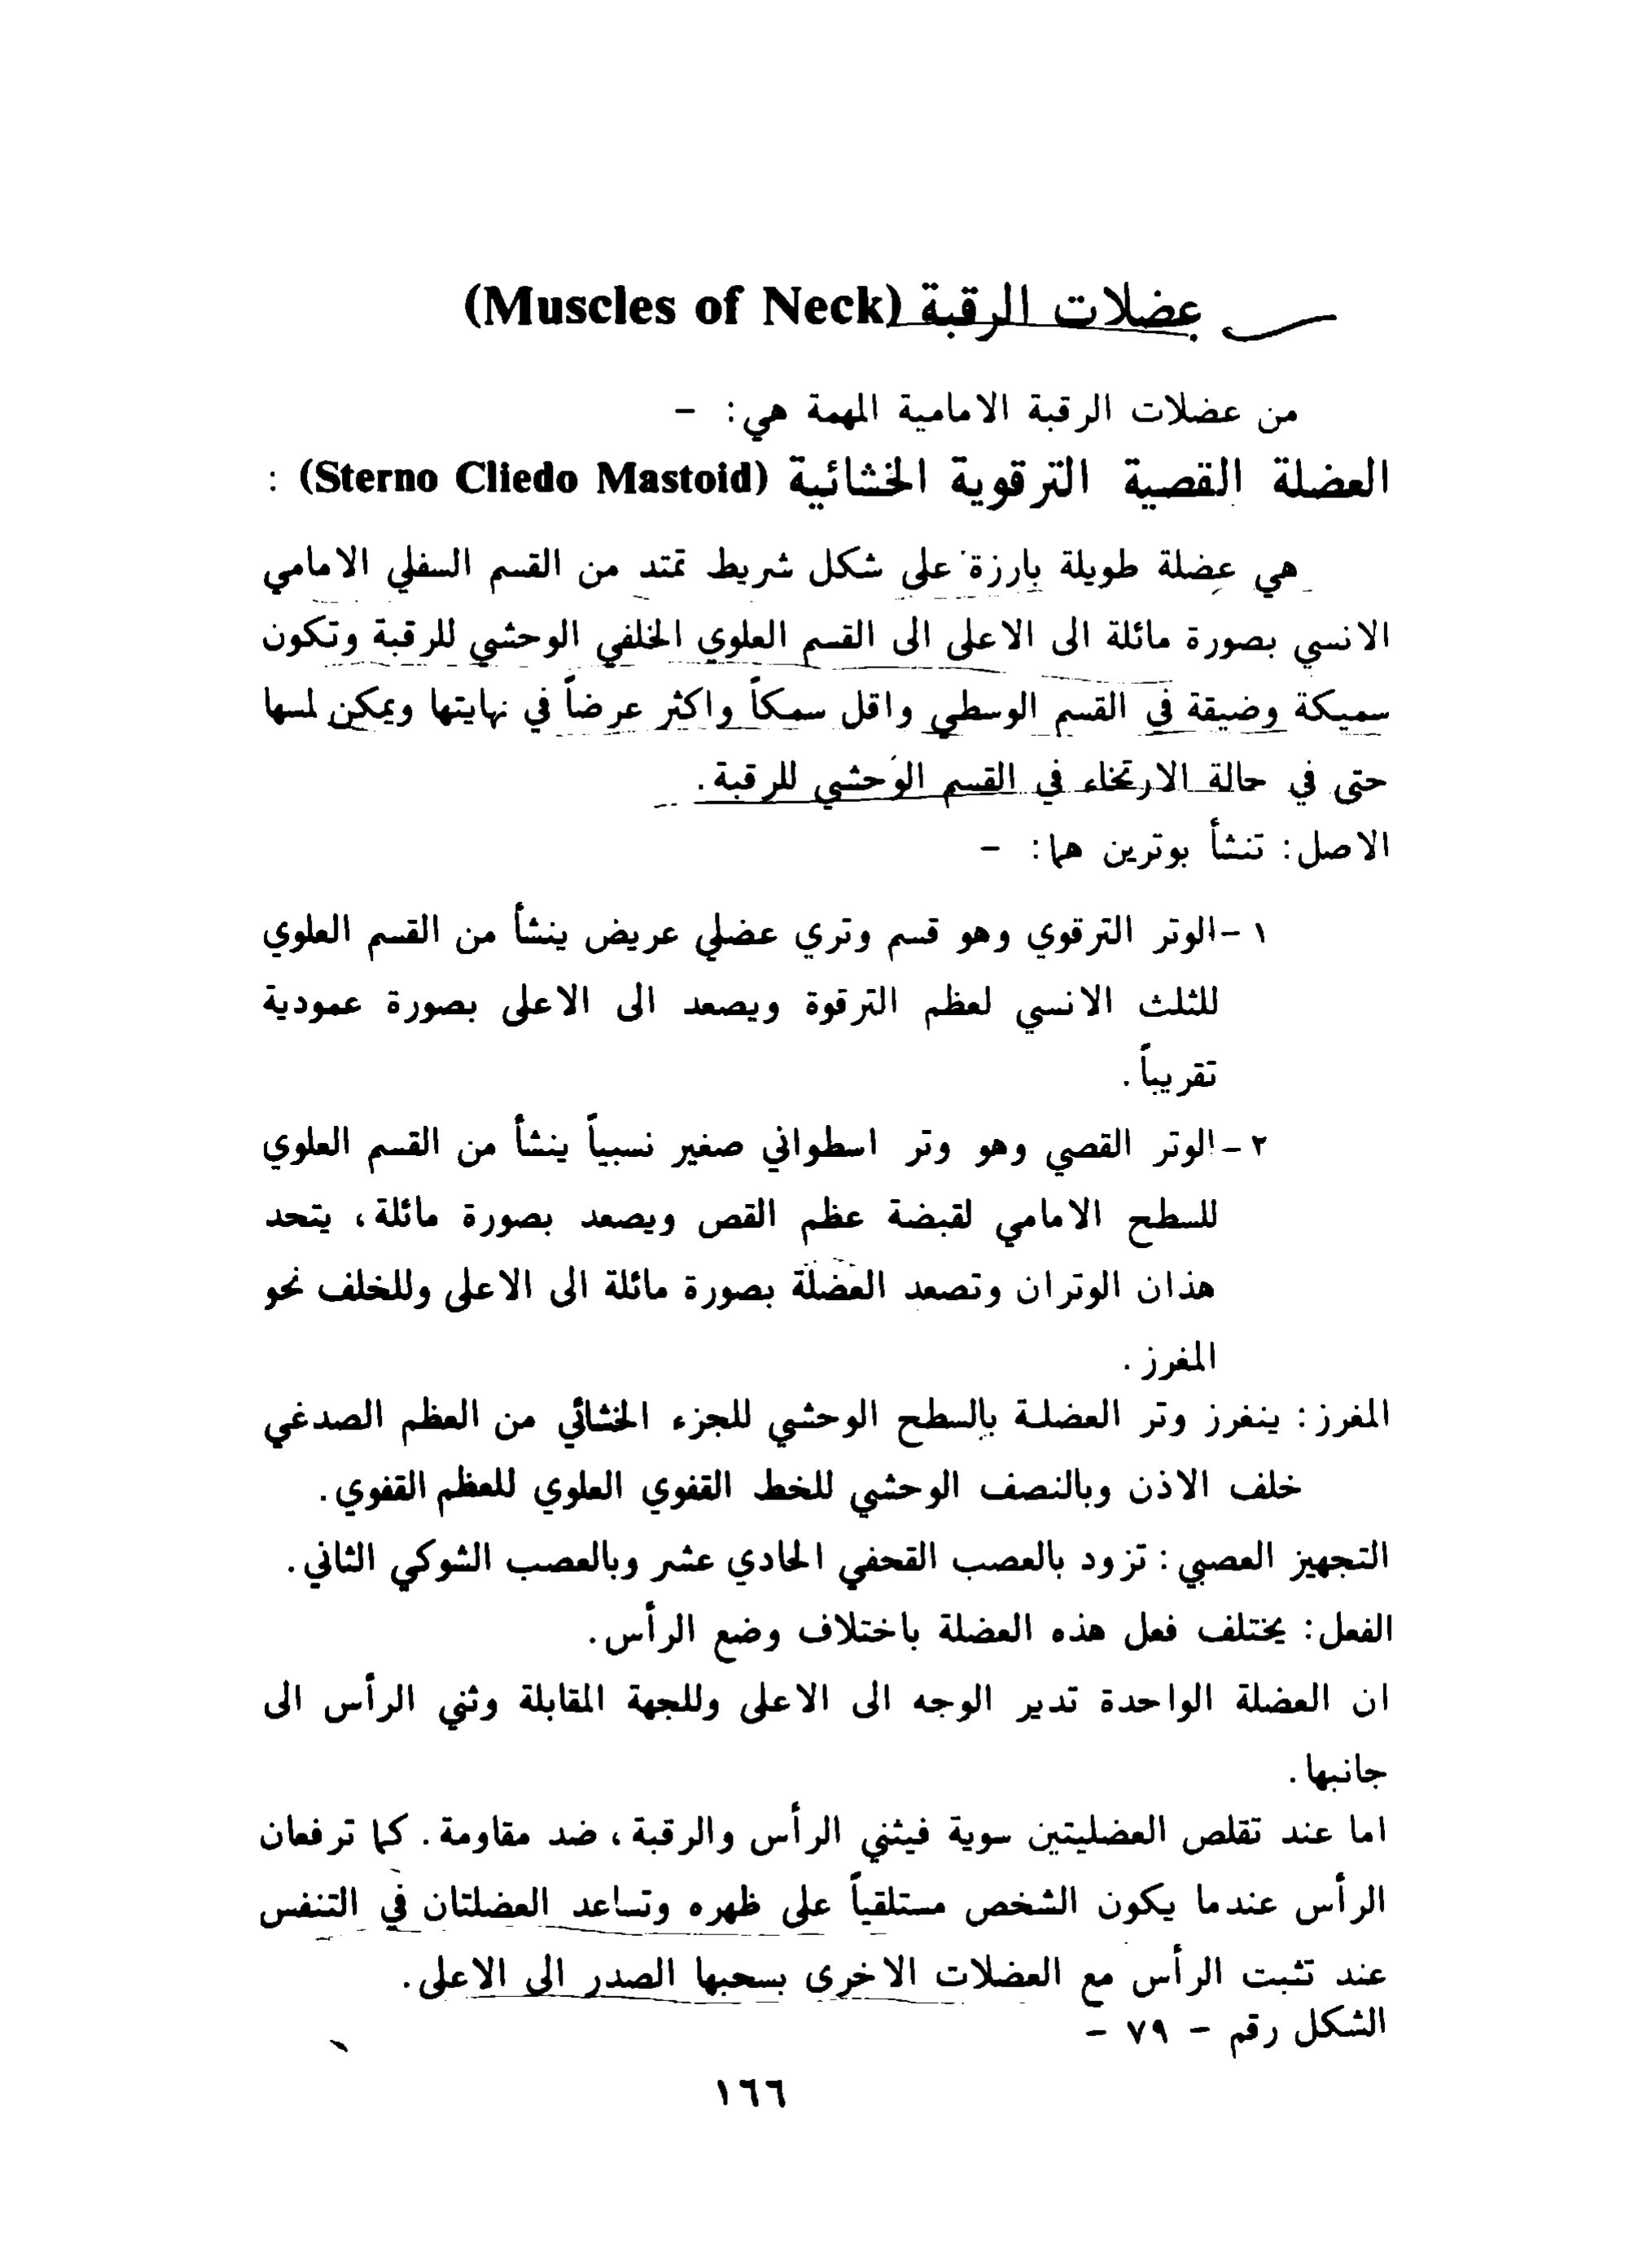 عضلات الرقبة (Muscles of Neck)
من عضلات الرقبة الامامية المهمة هي: –
العضلة القصية الترقوية الخشائية (Sterno Cliedo Mastoid) :
هي عضلة طويلة بارزة على شكل شريط تمتد من القسم السفلي الامامي
الانسي بصورة مائلة الى الاعلى الى القسم العلوي الخلفي الوحشي للرقبة وتكون
سميكة وضيقة في القسم الوسطي واقل سمكاً واكثر عرضاً في نهايتها ويمكن لمسها
حتى في حالة الارتخاء في القسم الوحشي للرقبة.
الاصل: تنشأ بوترين هما: –
١ –الوتر الترقوي وهو قسم وتري عضلي عريض ينشأ من القسم العلوي
للثلث الانسي لعظم الترقوة ويصعد الى الاعلى بصورة عمودية
تقريباً.
٢ –الوتر القصي وهو وتر اسطواني صغير نسبياً ينشأ من القسم العلوي
للسطح الامامي لقبضة عظم القص ويصعد بصورة مائلة، يتحد
هذان الوتران وتصعد العضلة بصورة مائلة الى الاعلى وللخلف نحو
المغرز.
المغرز: ينغرز وتر العضلة بالسطح الوحشي للجزء الخشائي من العظم الصدغي
خلف الاذن وبالنصف الوحشي للخط القفوي العلوي للعظم القفوي.
التجهيز العصبي: تزود بالعصب القحفي الحادي عشر وبالعصب الشوكي الثاني.
الفعل: يختلف فعل هذه العضلة باختلاف وضع الرأس.
ان العضلة الواحدة تدير الوجه الى الاعلى وللجهة المقابلة وثني الرأس الى
جانبها.
اما عند تقلص العضليتين سوية فيثني الرأس والرقبة، ضد مقاومة. كما ترفعان
الرأس عندما يكون الشخص مستلقياً على ظهره وتساعد العضلتان في التنفس
عند تثبت الرأس مع العضلات الاخرى بسحبها الصدر الى الاعلى.
الشكل رقم – ٧٩ –
١٦٦